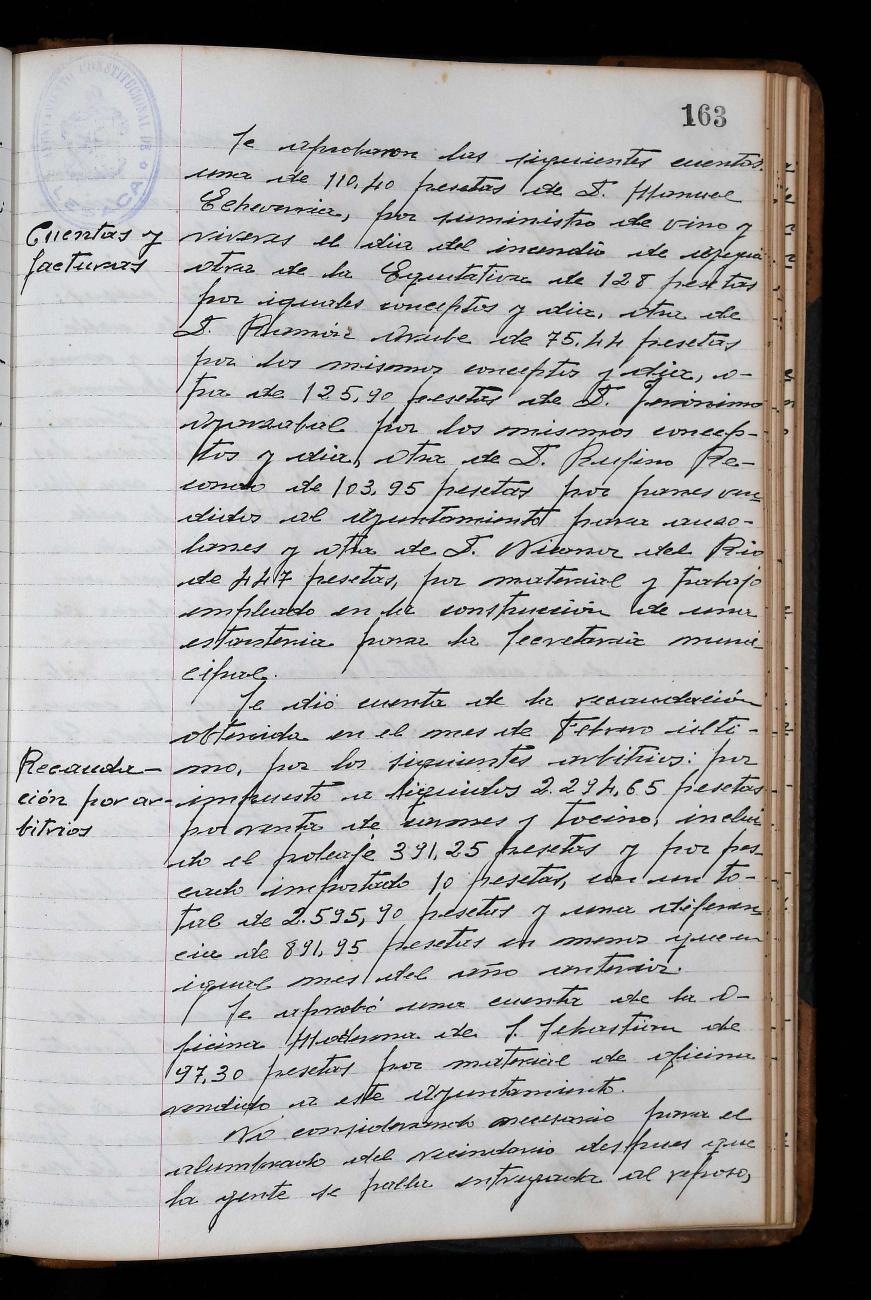 163
AYUNTAMIENTO CONSTITUCIONAL DE
LESACA
Se aprobaron las siguientes cuentas:
una de 110,40 pesetas de D. Manuel
Echeverria, por suministro de vino y
Cuentas y
facturas
viveres el dia del incendio de
otra de la Equitativa de 128 pesetas
por iguales conceptos y dia, otra de
D. Ramón de 75,44 pesetas
por los mismos conceptos y dia, o-
tra de 125,90 pesetas de D. Jeronimo
por los mismos concep-
tos y dia, otra de D. Rufino Re-
condo de 103,95 pesetas por panes ven
didos al Ayuntamiento para auso-
lanes y otra de D. Nicanor del Rio
de 447 pesetas, por material y trabajo
empleado en la construcción de una
estanteria para la Secretaria muni
cipal.
Se dió cuenta de la recaudación
obtenida en el mes de Febrero ulti-
Recauda-
ción por ar-
bitrios
mo, por los siguientes arbitrios: por
impuesto a liquidos 2.294,65 pesetas
por venta de carnes y tocino, inclui
do el poleaje 391,25 pesetas y por pes
cado importado 10 pesetas, en un to-
tal de 2.595,90 pesetas y una diferen
cia de 891,95 pesetas en menos que en
igual mes del año anterior.
Se aprobó una cuenta de la O-
ficina Moderna de S. Sebastian de
97,30 pesetas por material de oficina
vendido a este Ayuntamiento.
No considerando necesario para el
alumbrado del vecindario despues que
la gente se halla entregada al reposo,